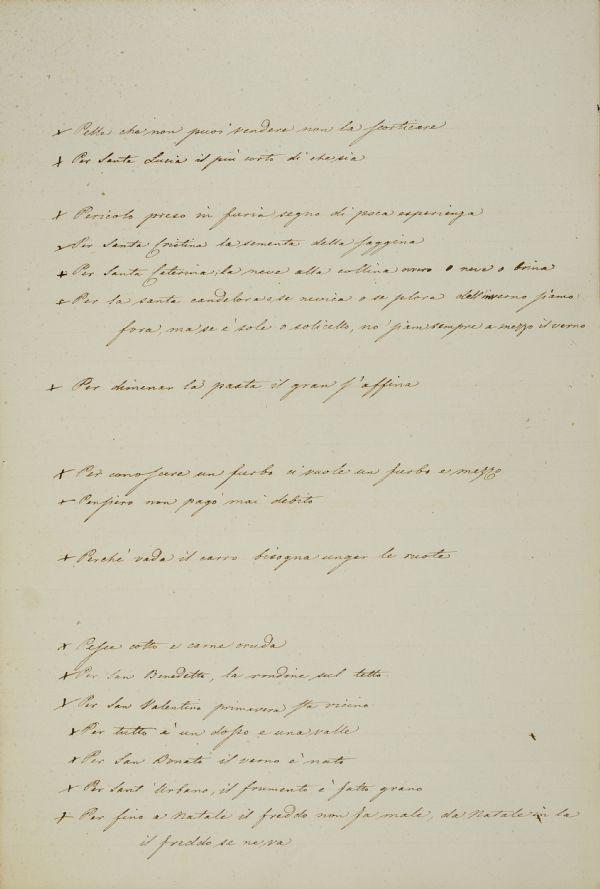 x Pelle che non puoi vendere non la scorticare
x Per Santa Lucia il più corto di che sia
x Pericolo preso in furia segno di poca esperienza
x Per Santa Cristina la sementa della saggina
x Per Santa Caterina, la neve alla collina ovvero o neve o brina
x Per la santa candelora, o se nevica o se plora dell'inverno siamo
fora, ma se è sole o solicello, no' siam sempre a mezzo il verno
x Per dimenar la pasta il gran s'affina
x Per conoscere un furbo ci vuole un furbo e mezzo
x Pensiero non pagò mai debito
x Perchè vada il carro bisogna unger le ruote
x Pesce cotto e carne cruda
x Per San Benedetto, la rondine sul tetto
x Per San Valentino primavera sta vicino
x Per tutto è un dosso e una valle
x Per San Donato il verno è nato
x Per Sant'Urbano, il frumento è fatto grano
x Per fino a Natale il freddo non fa male, da Natale in la
il freddo se ne va